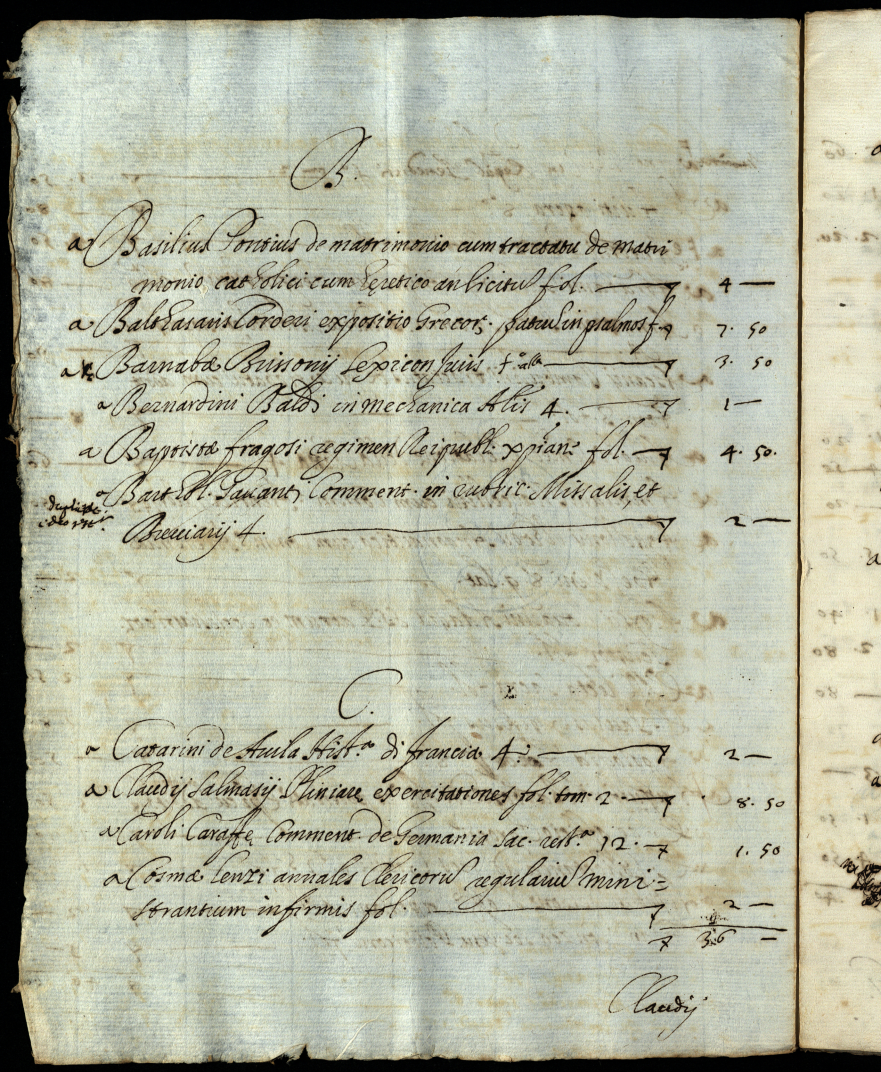 B.
a Basilius Pontius de matrimonio cum tractatu de matri
monio catholici cum hęretico an licitū fol. 4 —
a Balthasaris Corderi expositio Grecor. patrū in psalmos f. 7. 50
a Barnabæ Brissonij Lexicon Juris f.º 3. 50
a Bernardini Baldi in mechanica Alis 4. 1 —
a Baptistæ fragosi regimen Reipubl. xp̄iane fol. 4. 50.
a Barthol. Gavanti Comment. in rubric. Missalis, et
Breviarij 4. 2 —
C.
a Catarini de Avila Hist.ª di francia 4.º 2 —
a Claudij Salmasij Plinianę exercitationes fol. tom. 2. 8. 50
a Caroli Caraffę Comment. de Germania sac. rest.ª 12. 1. 50
a Cosmæ Lenzi annales Clericorū regulariū mini =
strantium infirmis fol. 2 —
36 —
Claudij